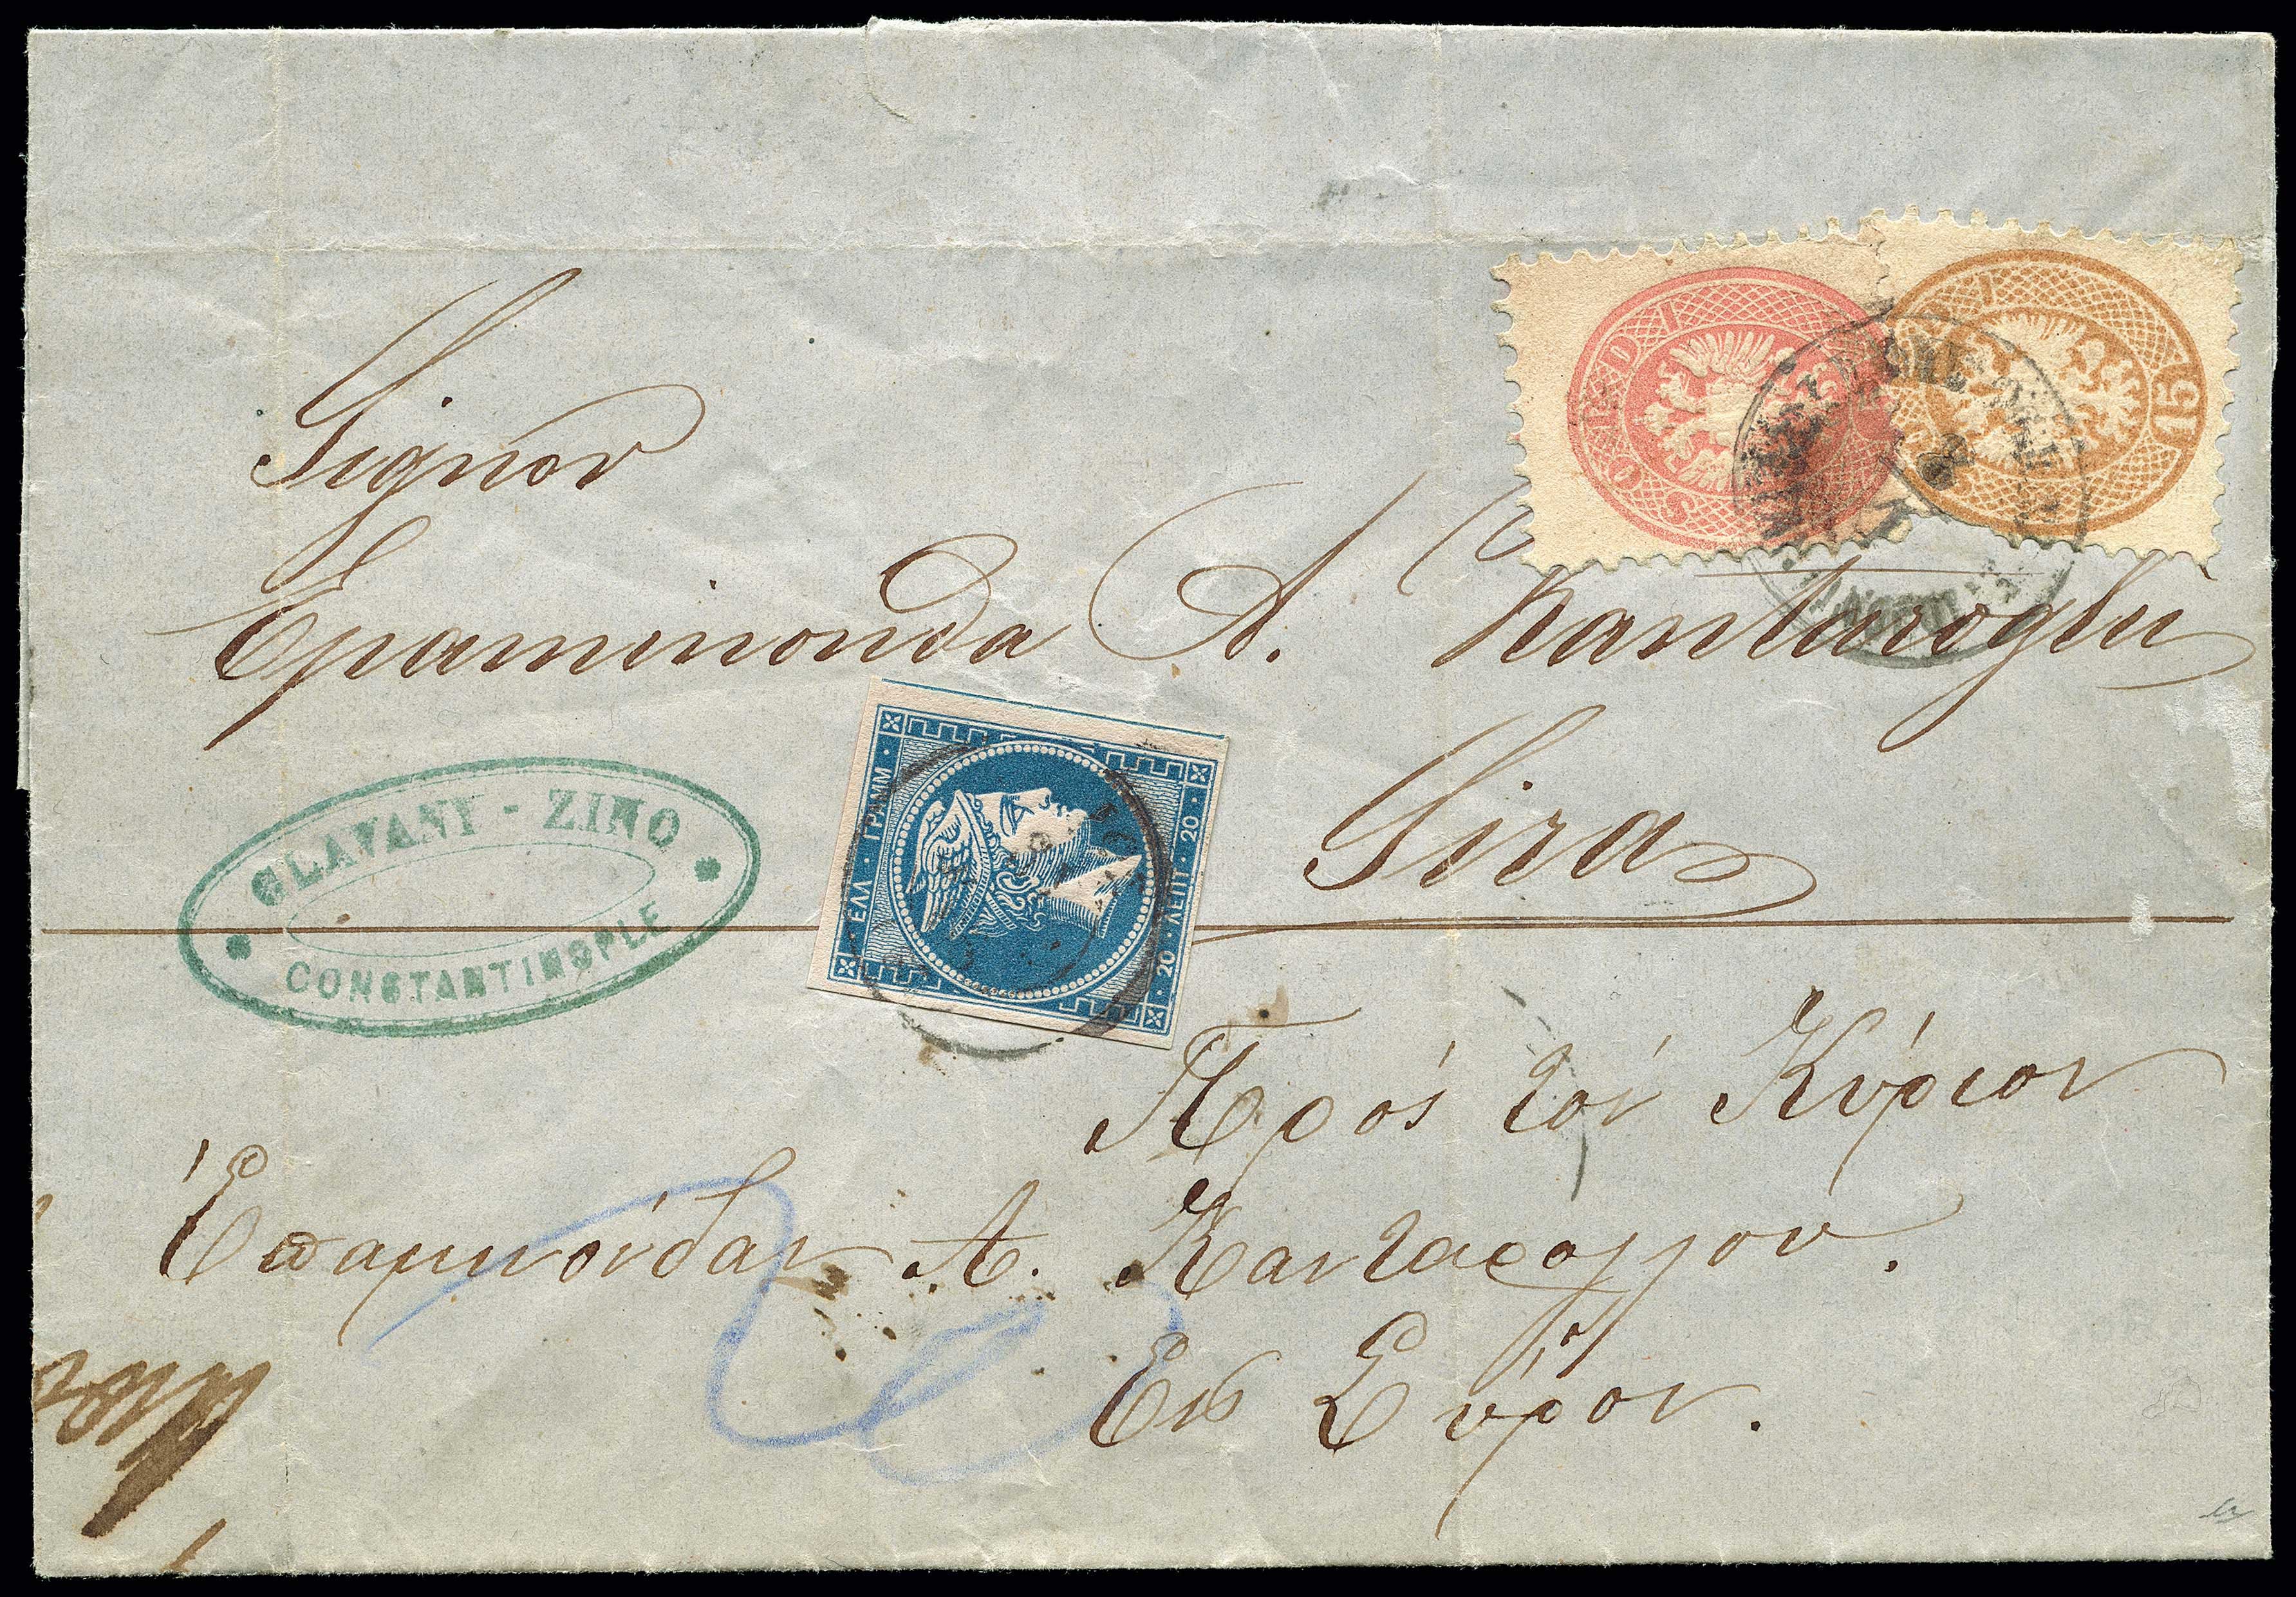 Signor
Epaminonda A. Kantaroglu
Sira
GLAVANY - ZINO
CONSTANTINOPLE
ΕΛΛ · ΓΡΑΜΜ
20 · ΛΕΠΤ · 20
SOLDI
15
Πρὸς τὸν Κύριον
Ἐπαμινόνδαν Α. Κανταρόγλου.
Εἰς Σύρον.
20